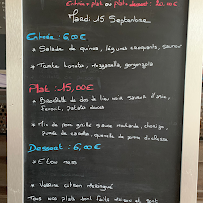 Entrée + plat ou plat + dessert : 20,00 €
Mardi 15 Septembre
Entrée : 6,00 €
* Salade de quinoa, légumes croquants, saumon
* Tarte tomate, mozzarella, gorgonzola
Plat : 15,00 €
* de dos de lieu noir sauce d'
fenouil, patate douce
* de porc grillé sauce moutarde, chorizo,
purée de carotte,
Dessert : 6,00 €
* mess
* Verrine citron meringué
Tous nos plats sont faits maison et sont